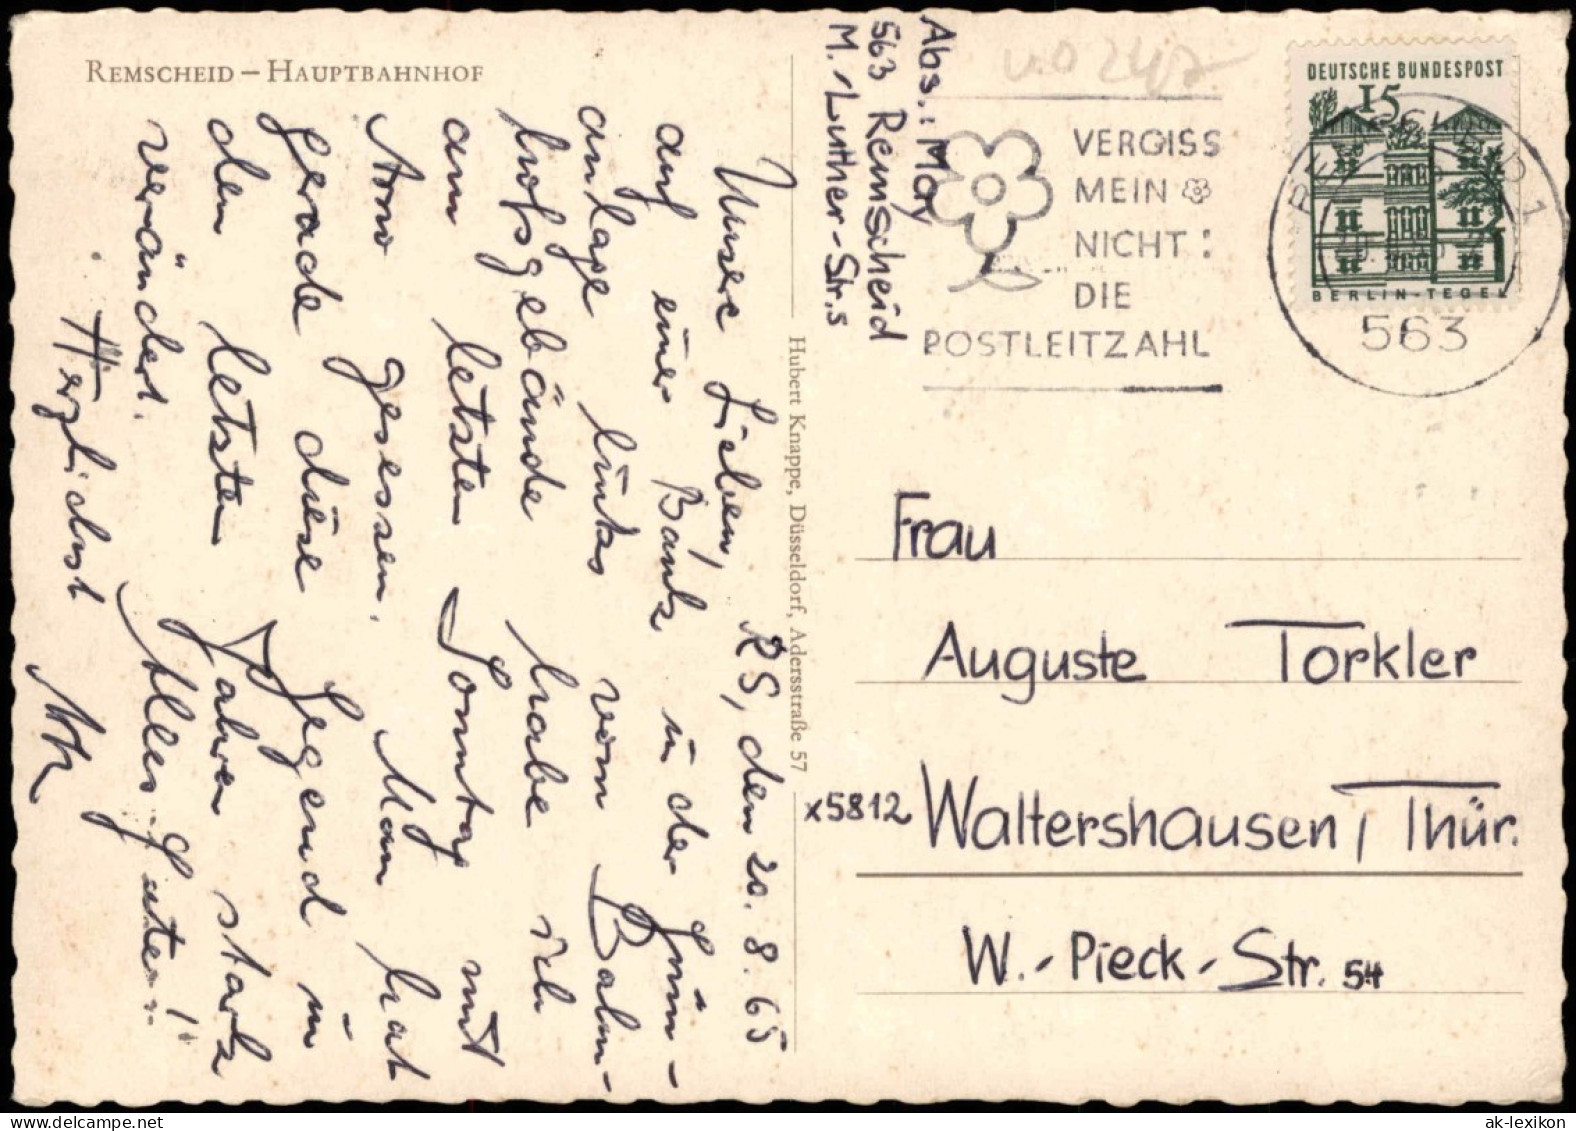 REMSCHEID – HAUPTBAHNHOF
Unsere Lieben, RS, den 20.8.65
auf einer Bank in der Grün-
anlage links vom Bahn-
hofsgebäude habe ich
am letzten Sonntag mit
Arno gesessen. Man hat
gerade diese Gegend in
den letzten Jahren stark
verändert. Alles Gute!
Herzlichst
Hubert Knappe, Düsseldorf, Adersstraße 57
Abs.: May
563 Remscheid
M.-Luther-Str. 5
VERGISS
MEIN
NICHT:
DIE
POSTLEITZAHL
DEUTSCHE BUNDESPOST
15
BERLIN-TEGEL
REMSCHEID 1
563
Frau
Auguste Torkler
x5812 Waltershausen, Thür.
W.-Pieck-Str. 54
ak-lexikon